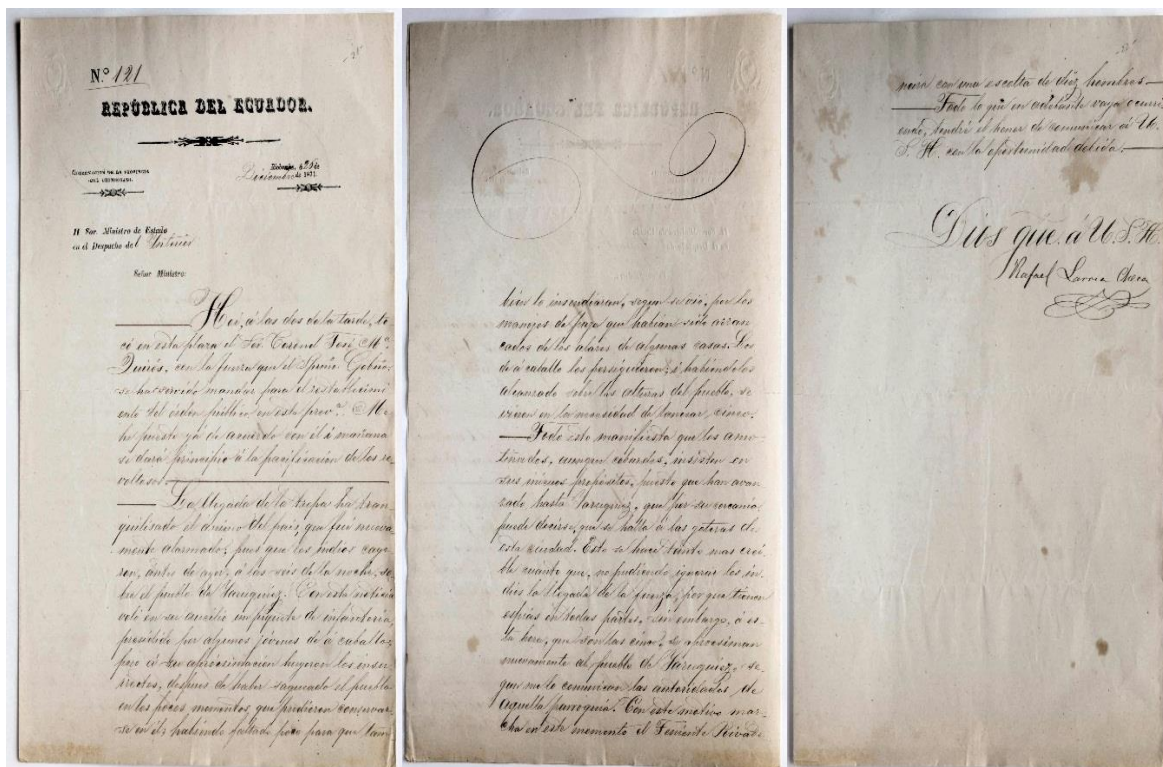 Nº 121
REPÚBLICA DEL ECUADOR.
GOBERNACION DE LA PROVINCIA
DEL CHIMBORAZO.
Riobamba, á 26 de
Diciembre de 1871.
H Sor. Ministro de Estado
en el Despacho del Interior
Señor Ministro:
Hoi, á las dos de la tarde, to-
có en esta plaza el Sor Coronel José Mª.
Quirós, con la fuerza que el Spmo Gobno.
se ha servido mandar para el restablecimi
ento del órden público en esta provª. Me
he puesto yá de acuerdo con él i mañana
se dará principio á la pacificacion de los re-
voltosos.
La llegada de la tropa ha tran-
quilisado el ánimo del pais, que fué nueva-
mente alarmado; pues que los indios caye-
ron, ántes de ayer, á las seis de la noche, so-
bre el pueblo de Yaruquiez. Con esta noticia
voló en su aucilio un piquete de infantería,
presidido por algunos jóvenes de á caballo;
pero á su aprocsimacion huyeron los insu-
rrectos, despues de haber saqueado el pueblo
en los pocos momentos que pudieron conservar-
se en él; habiendo faltado poco para que tam
bien lo insendiaran, segun se vió, por los
manojos de paja que habian sido arran
cados de los alares de algunas casas. Los
de á caballo los persiguieron; i habiéndolos
alcanzado sobre las alturas del pueblo, se
vieron en la necesidad de lancear, cinco.
Todo esto manifiesta que los amo-
tinados, aunque cobardes, insisten en
sus inicuos propósitos, puesto que han avan
zado hasta Yaruquiez, que por su cercanía
puede decirse, que se halla á las goteras de
esta ciudad. Esto se hace tanto mas crei
ble cuanto que, no pudiendo ignorar los in
dios la llegada de la fuerza, por que tienen
espías en todas partes, sin embargo, á es
ta hora, que son las cinco, se aprocsiman
nuevamente al pueblo de Yaruquiez, se-
gun me lo comunican las autoridades de
aquella parroquia. Con este motivo mar-
cha en este momento el Teniente Rivade
neira con una escolta de diez hombres
Todo lo que en adelante vaya ocurri
endo, tendré el honor de comunicar á U.
S. H. con la oportunidad debida.
Dios gue. á U. S. H.
Rafael Larrea Checa